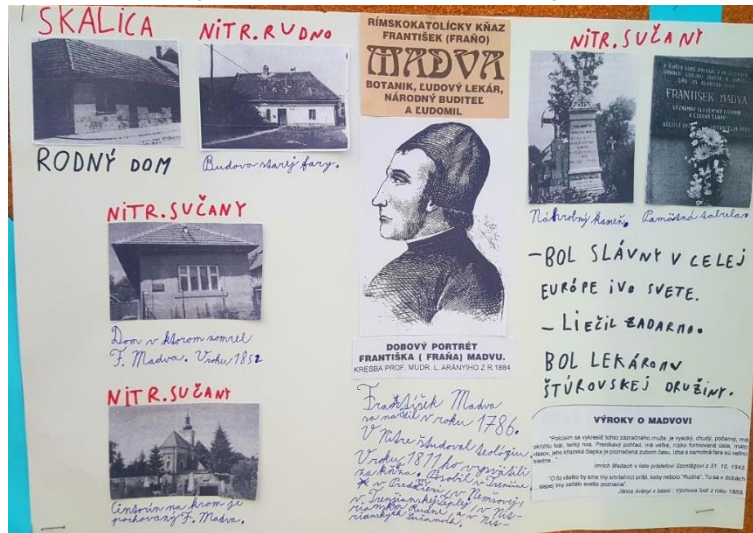 SKALICA
RODNÝ DOM
NITR. RUDNO
Budova starej fary.
NITR. SUČANY
Dom v ktorom zomrel
F. Madva. V roku 1852
NITR. SUČANY
Cintorín na krom je
pochovaný F. Madva.
RÍMSKOKATOLÍCKY KŇAZ
FRANTIŠEK (FRAŇO)
MADVA
BOTANIK, ĽUDOVÝ LEKÁR,
NÁRODNÝ BUDITEĽ
A ĽUDOMIL
DOBOVÝ PORTRÉT
FRANTIŠKA ( FRAŇA) MADVU.
KRESBA PROF. MUDR. L. ARÁNYIHO Z R.1884
František Madva
sa narodil v roku 1786.
V Nitre študoval teológiu.
V roku 1811 ho vysvätili
za kňaza. Pôsobil v Trenčíne,
v Nemšovej,
v Trenčianskej Teplej, v Nit-
rianskom Rudne, a v Nit-
rianskych Sučanoch.
NITR. SUČANY
FRANTIŠEK MADVA
Náhrobný kameň.
Pamätná tabuľa.
-BOL SLÁVNY V CELEJ
EURÓPE IVO SVETE.
- LIEČIL ZADARMO.
BOL LEKÁROM
ŠTÚROVSKEJ DRUŽINY.
VÝROKY O MADVOVI
"Pokúsim sa vykresliť tohto zázračného muža: je vysoký, chudý, počerný, má
okrúhlu tvár, tenký nos. Prenikavý pohľad, má veľké, nízko formované ústa, málo
vlasov, jeho kňazská čiapka je poznačená zubom času. Izba a samotná fara sú veľmi
biedne..."
Imrich Madách v liste priateľovi Szontágovi z 31. 10. 1843.
"O čo všetko by sme my smrteľníci prišli, keby nebolo "Rudna". Tu sa v dobách
slepej tmy zažalo svetlo poznania".
János Arányi v básni : Výchova ľudí z roku 1865.